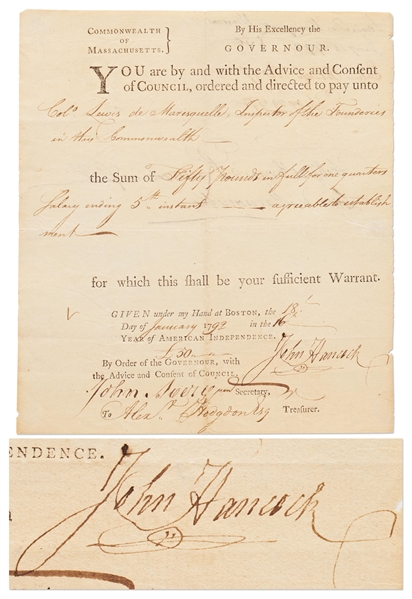 COMMONWEALTH
OF
MASSACHUSETTS.
By His Excellency the
GOVERNOUR.
YOU are by and with the Advice and Consent
of COUNCIL, ordered and directed to pay unto
Colo. Lewis de Maresquelle, Inspector of the Founderies
in this Commonwealth
the Sum of Fifty Pounds in full for one quarters
Salary ending 5th instant agreeable to establish
ment
for which this shall be your sufficient Warrant.
GIVEN under my Hand at BOSTON, the
Day of January 179 in the 16
YEAR OF AMERICAN INDEPENDENCE.
£50
By Order of the GOVERNOUR, with
the Advice and Consent of COUNCIL,
John Hancock
John Avery jun Secretary.
To Alexr. Hodgdon Esq Treasurer.
ENDENCE.
John Hancock